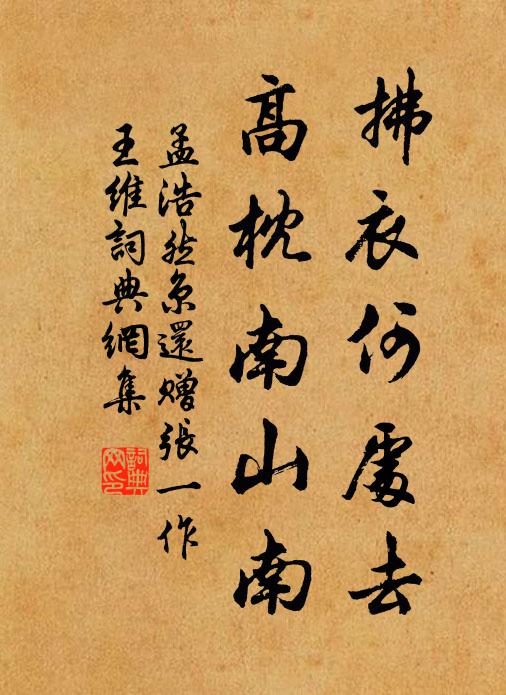 拂衣何處去
高枕南山南
孟浩然京還贈張一作
王維詞典網集
詞典網印